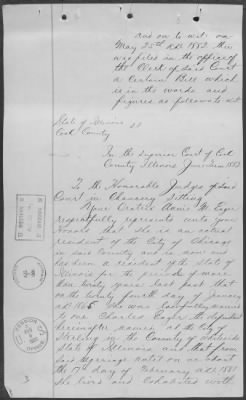 And on to wit: on
May 25th A.D. 1882 there
was filed in the office of
the Clerk of said Court
a certain Bill which
is in the words and
figures as follows to wit
State of Illinois
Cook County } SS
In the Superior Court of Cook
County Illinois June Term 1882
To the Honorable Judges of said
Court in Chancery Sitting
Your Oratrix Annie M.
respectfully represents unto your
Honors that she is an actual
resident of the City of Chicago
in said County and is now and
has been a resident of the State of
Illinois for the period of more
than twenty years last past that
on the twenty fourth day of January
A.D. she was lawfully married
to one Charles the defendant
hereinafter named at the City of
Sterling in the County of Whiteside
State of Illinois and that from
said marriage until on or about
the 17th day of February A.D. 1881
she lived and cohabited with
3